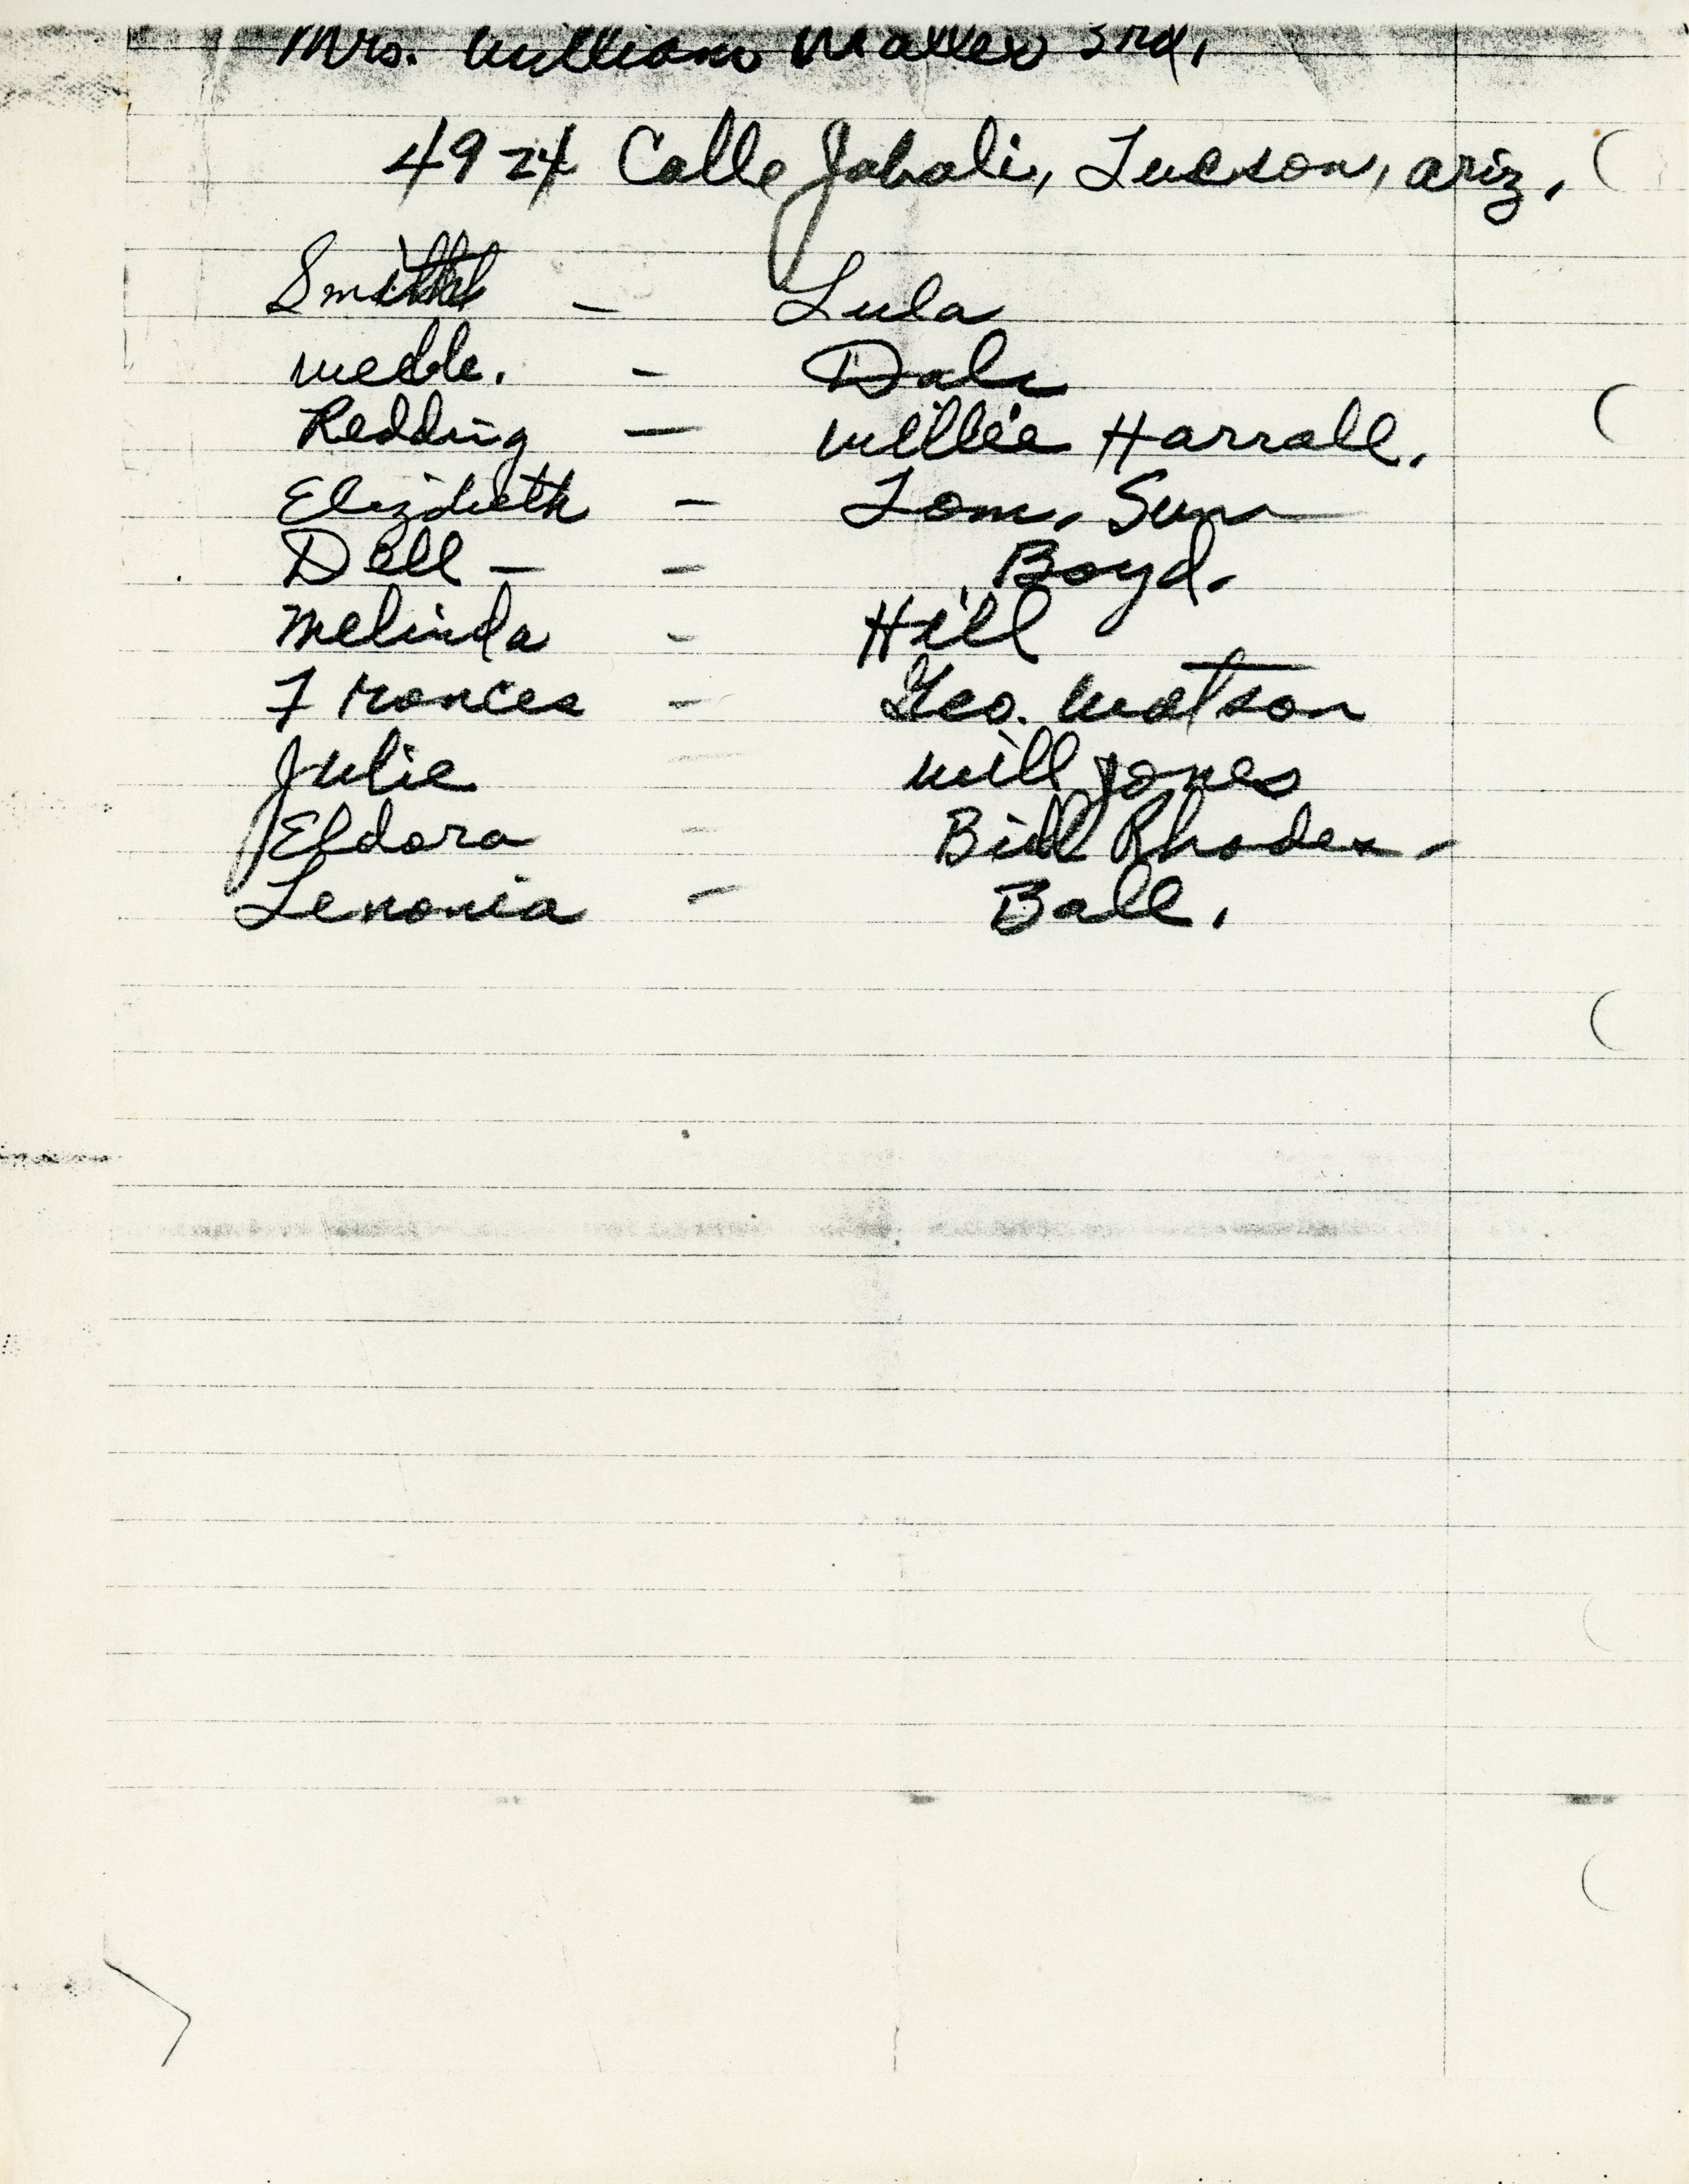 Mrs. William 3rd,
4924 Calle Jabali, Tucson, Ariz.
Smith - Lula
Webb. - Dale
Redding - Willie Harrall.
Elizabeth - Tom. Sun
Dell - - Boyd.
Melinda - Hill
Frances - Geo. Watson
Julie - Will Jones
Eldora - Bill Rhodes.
Lenonia - Ball.